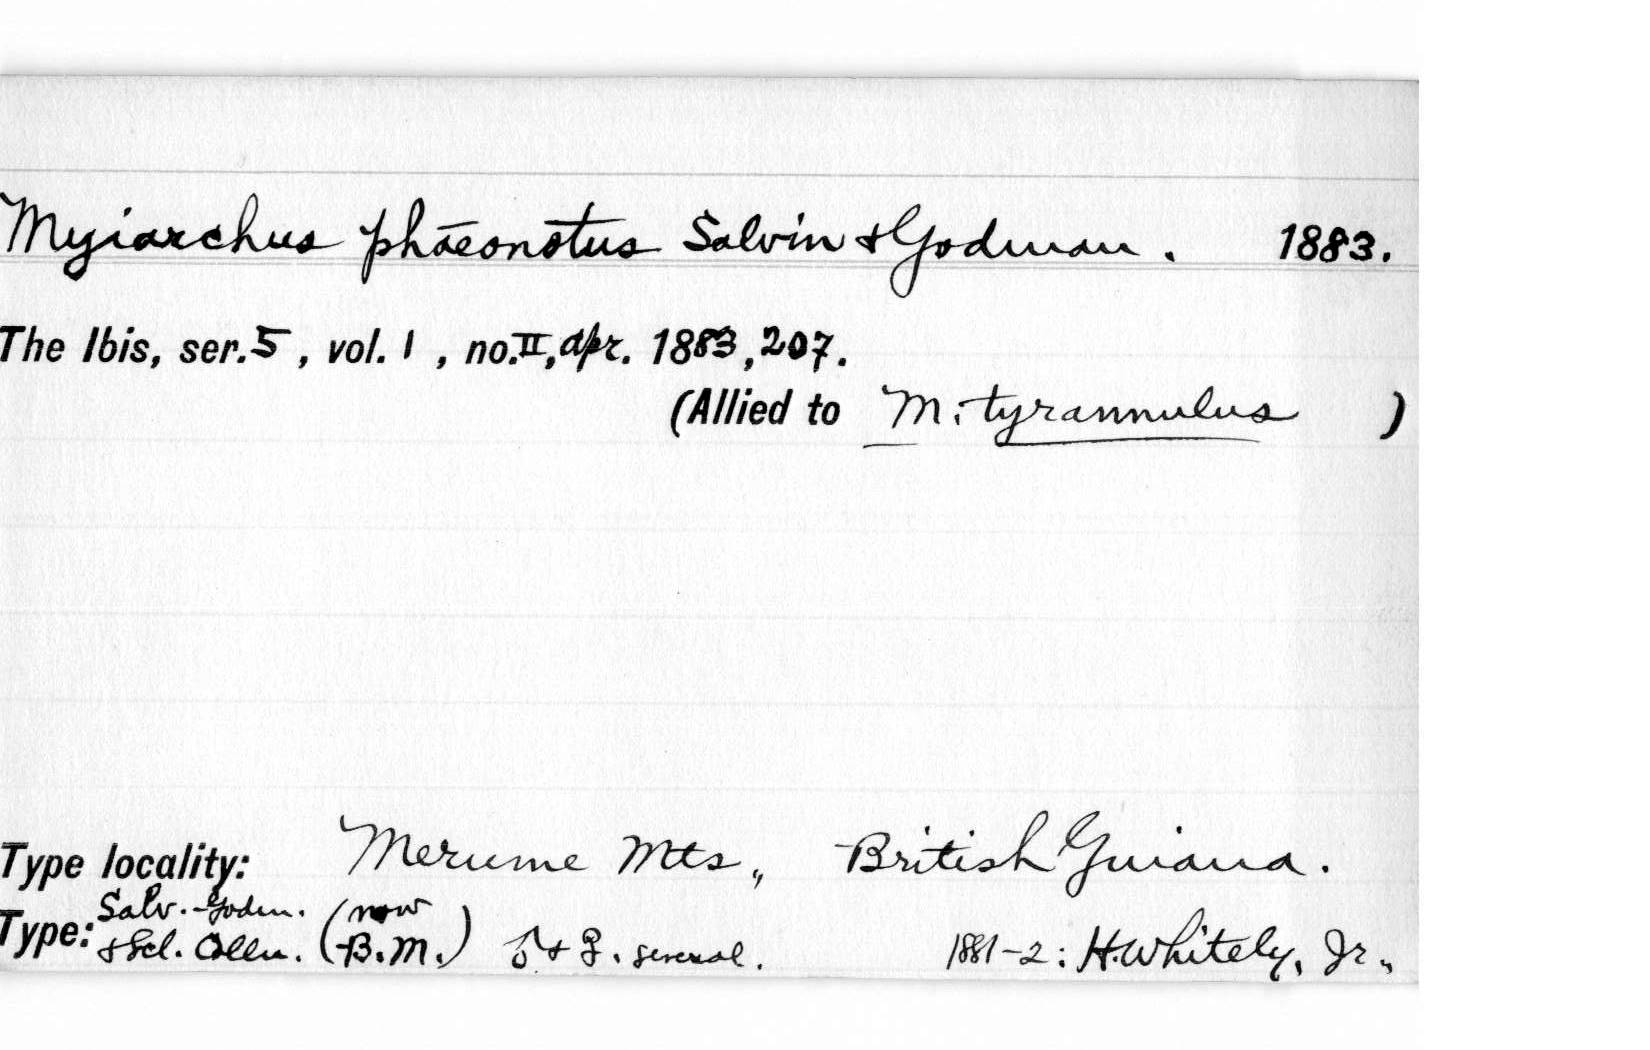 Myiarchus phaeonotus Salvin & Godman. 1883.
The Ibis, ser. 5, vol. 1, no. II, Apr. 1883, 207.
(Allied to M. tyrannulus )
Type locality: Merume Mts., British Guiana.
Type: Salv.-Godm. & Scl. Colln. (now B.M.) ♂ & ♀. several. 1881-2: H. Whitely, Jr.,